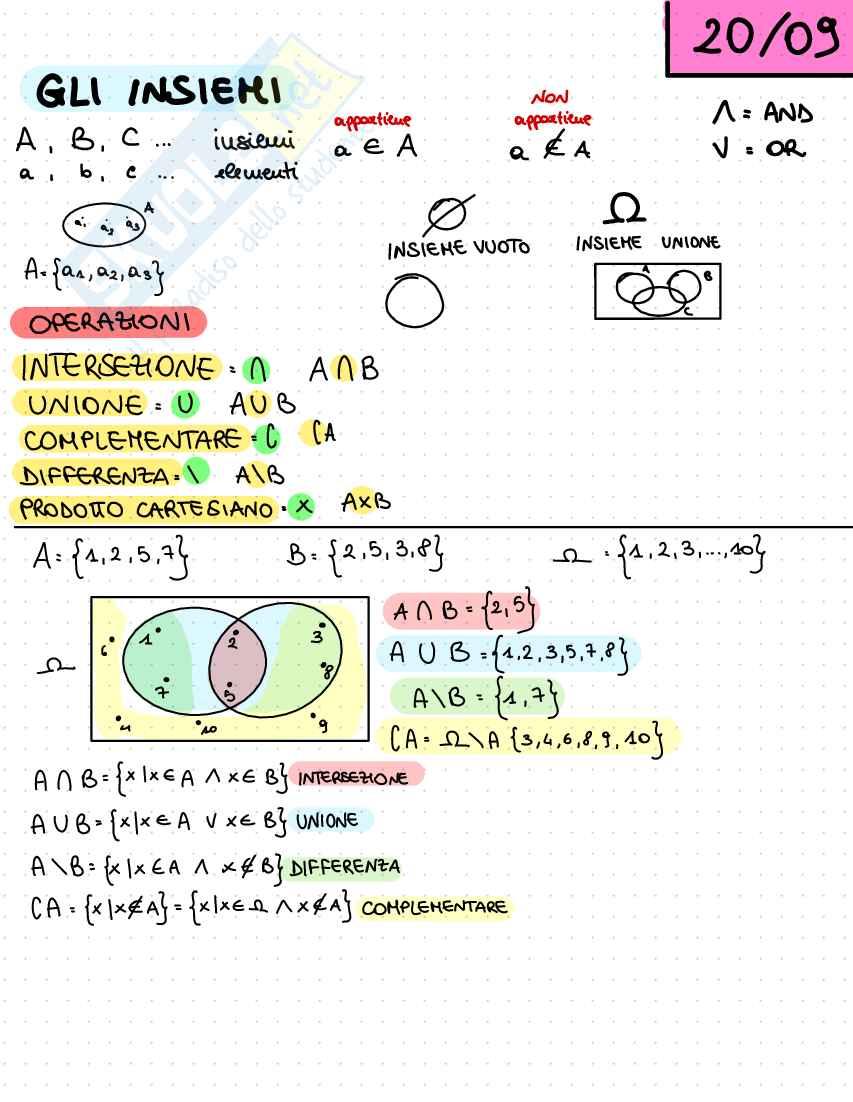 20/09
GLI INSIEMI
A, B, C ... insiemi
a, b, c ... elementi
appartiene
a ∈ A
NON
appartiene
a ∉ A
Λ = AND
V = OR
a1 a2 a3 A
A = {a1, a2, a3}
∅
INSIEME VUOTO
Ω
INSIEME UNIONE
A B C
OPERAZIONI
INTERSEZIONE = ∩ A ∩ B
UNIONE = U A U B
COMPLEMENTARE = C CA
DIFFERENZA = \ A\B
PRODOTTO CARTESIANO = x AxB
A = {1, 2, 5, 7} B = {2, 5, 3, 8} Ω = {1, 2, 3, ..., 10}
Ω
6 1 2 3
7 5 8
4 10 9
A ∩ B = {2, 5}
A U B = {1, 2, 3, 5, 7, 8}
A\B = {1, 7}
CA = Ω\A {3, 4, 6, 8, 9, 10}
A ∩ B = {x | x ∈ A Λ x ∈ B} INTERSEZIONE
A U B = {x | x ∈ A V x ∈ B} UNIONE
A\B = {x | x ∈ A Λ x ∉ B} DIFFERENZA
CA = {x | x ∉ A} = {x | x ∈ Ω Λ x ∉ A} COMPLEMENTARE